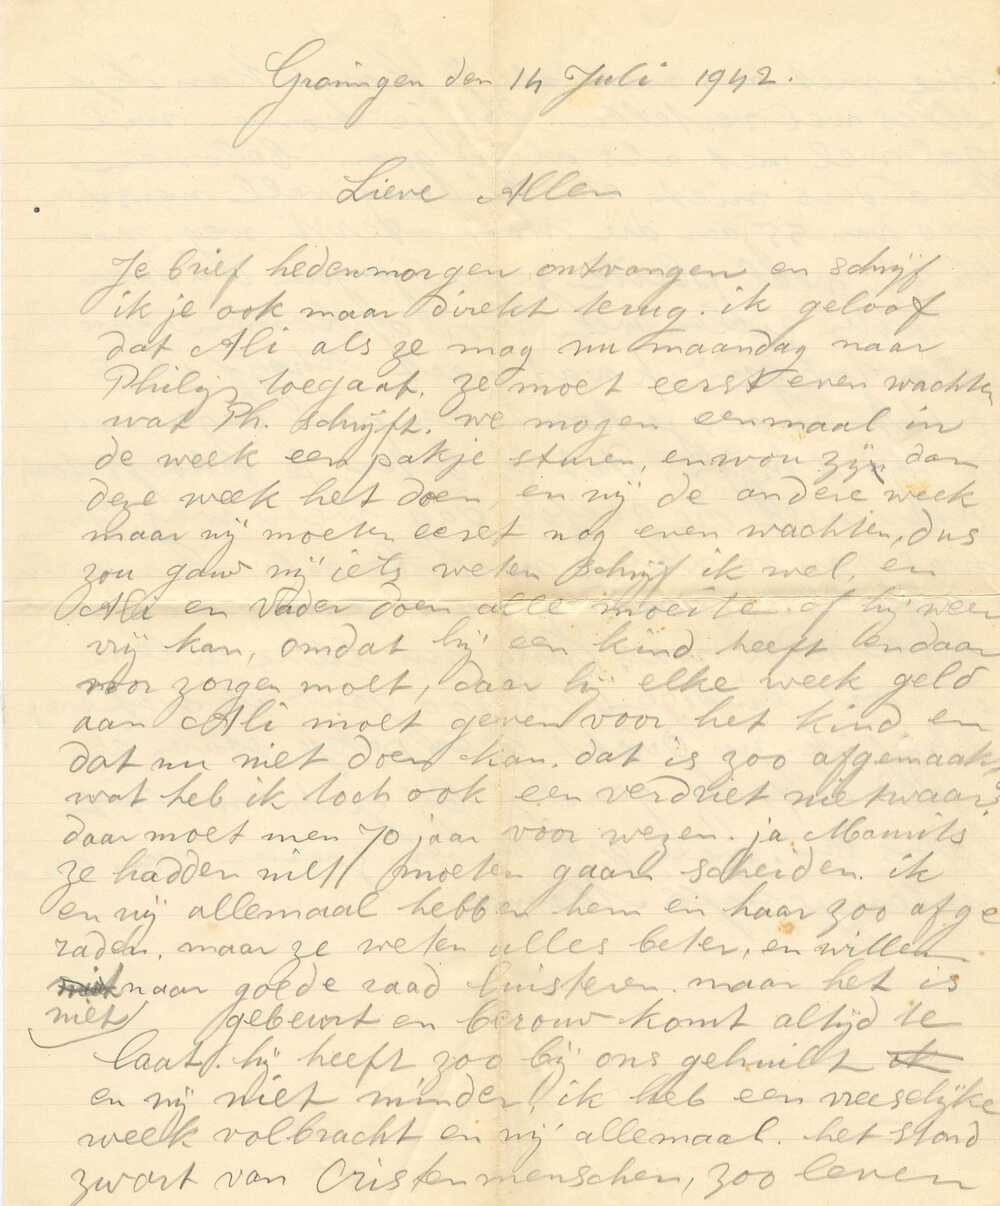 Groningen den 14 Juli 1942.
Lieve Allen
Je brief hedenmorgen ontvangen en schrijf
ik je ook maar direkt terug. ik geloof
dat Ali als ze mag nu maandag naar
Philip toegaat. ze moet eerst even wachten
wat Ph. schrijft. we mogen eenmaal in
de week een pakje sturen, en wou zij dan
deze week het doen en wij de andere week
maar wij moeten eerst nog even wachten, dus
zou gauw wij iets weten schrijf ik wel, en
Ali en Vader doen alle moeite of hij weer
vrij kan, omdat hij een kind heeft en daar
voor zorgen moet, daar hij elke week geld
aan Ali moet geven voor het kind en
dat nu niet doen kan. dat is zoo afgemaakt,
wat heb ik toch ook een verdriet nietwaar?
daar moet men 70 jaar voor wezen. ja Maurits
ze hadden niet moeten gaan scheiden. ik
en wij allemaal hebben hem en haar zoo afge
raden. maar ze weten alles beter, en willen
naar goede raad luisteren. maar het is
niet gebeurt en berouw komt altijd te
laat. hij heeft zoo bij ons gehuilt ik
en wij niet minder, ik heb een vreeselijke
week volbracht en wij allemaal. het stond
zwart van Cristenmenschen, zoo leven